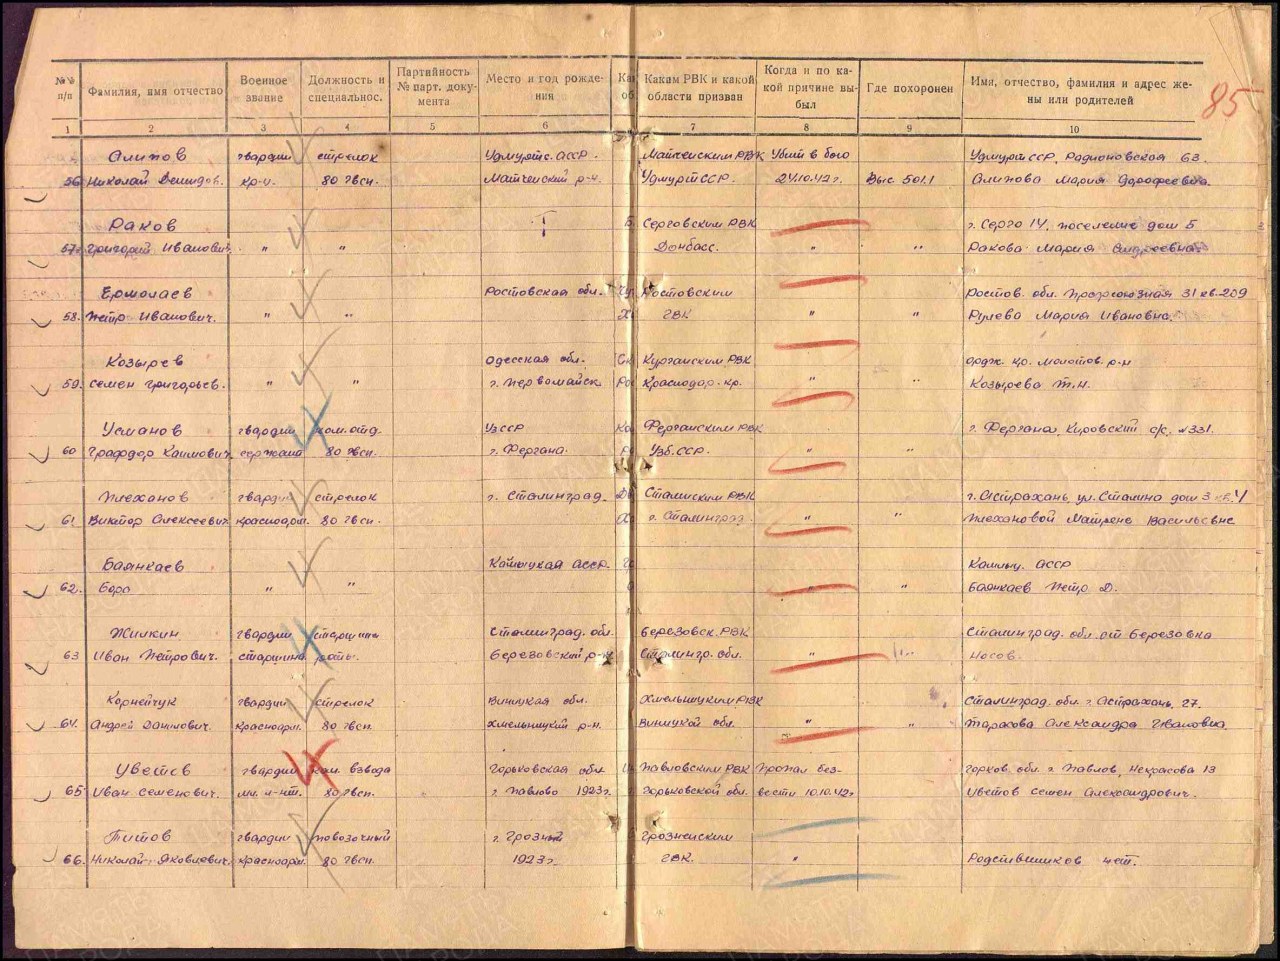 85
№№ п/п | Фамилия, имя отчество | Военное звание | Должность и специальнос. | Партийность № парт. документа | Место и год рождения | Каким РВК и какой области призван | Когда и по какой причине выбыл | Где похоронен | Имя, отчество, фамилия и адрес жены или родителей
1 2 3 4 5 6 7 8 9 10
Алипов гвардии стрелок Удмуртс. АССР. РВК Убит в бою Удмурт ССР,
56 Николай Демидов. кр-ц. 80 гвсп. р-н Удмурт ССР. 24.10.42 г. Выс 501.1 Алипова Мария Дорофеевна.
Раков Серговским РВК г. Серго 14, поселение дом 5
57. Григорий Иванович " " Донбасс. " " Ракова Мария Андреевна.
Ермолаев Ростовская обл. Ростовским Ростов. обл. Профсоюзная 31 кв. 209
58. Петр Иванович. " " ГВК " " Рулева Мария Ивановна.
Козырев Одесская обл. Курганским РВК ордж. кр. молотов. р-н
59. Семен Григорьев. " " г. Первомайск Краснодар. кр. " " Козырева Т.Н.
Усманов гвардии ком. отд. УзССР Ферганским РВК г. Фергана, Кировский с/с. №331.
60 Каимович сержант 80 гвсп. г. Фергана. Узб. ССР. " "
Плеханов гвардии стрелок г. Сталинград. Сталинским РВК г. Астрахань, ул. Сталина дом 3 кв. 4
61. Виктор Алексеевич красноарм. 80 гвсп. г. Сталинград " " Плехановой Матрене Васильевне
Баянкаев АССР. АССР
62. Боро " " " " Баянкаев Петр Д.
Жилкин гвардии старшина Сталинград. обл. Березовск. РВК Сталинград. обл. ст Березовка
63 Иван Петрович. старшина роты. Березовский р-н Сталингр. обл. " " Носов.
Корнейчук гвардии стрелок Виницкая обл. Хмельницким РВК Сталинград. обл. г. Астрахань, 27.
64. Андрей Данилович. красноарм. 80 гвсп. Хмельницкий р-н. Виницкой обл. " " Тарасова Александра Ивановна.
Цветов гвардии ком. взвода Горьковская обл. Павловским РВК Пропал без- горков. обл. г. Павлов, Некрасова 13
65. Иван Семенович. мл. л-нт. 80 гвсп. г. Павлово 1923г. Горьковской обл. вести 10.10.42г. Цветов Семен Александрович.
Титов гвардии повозочный г. Грозный Грозненским
66. Николай Яковлевич. красноарм. 80 гвсп. 1923г. ГВК. " нет.